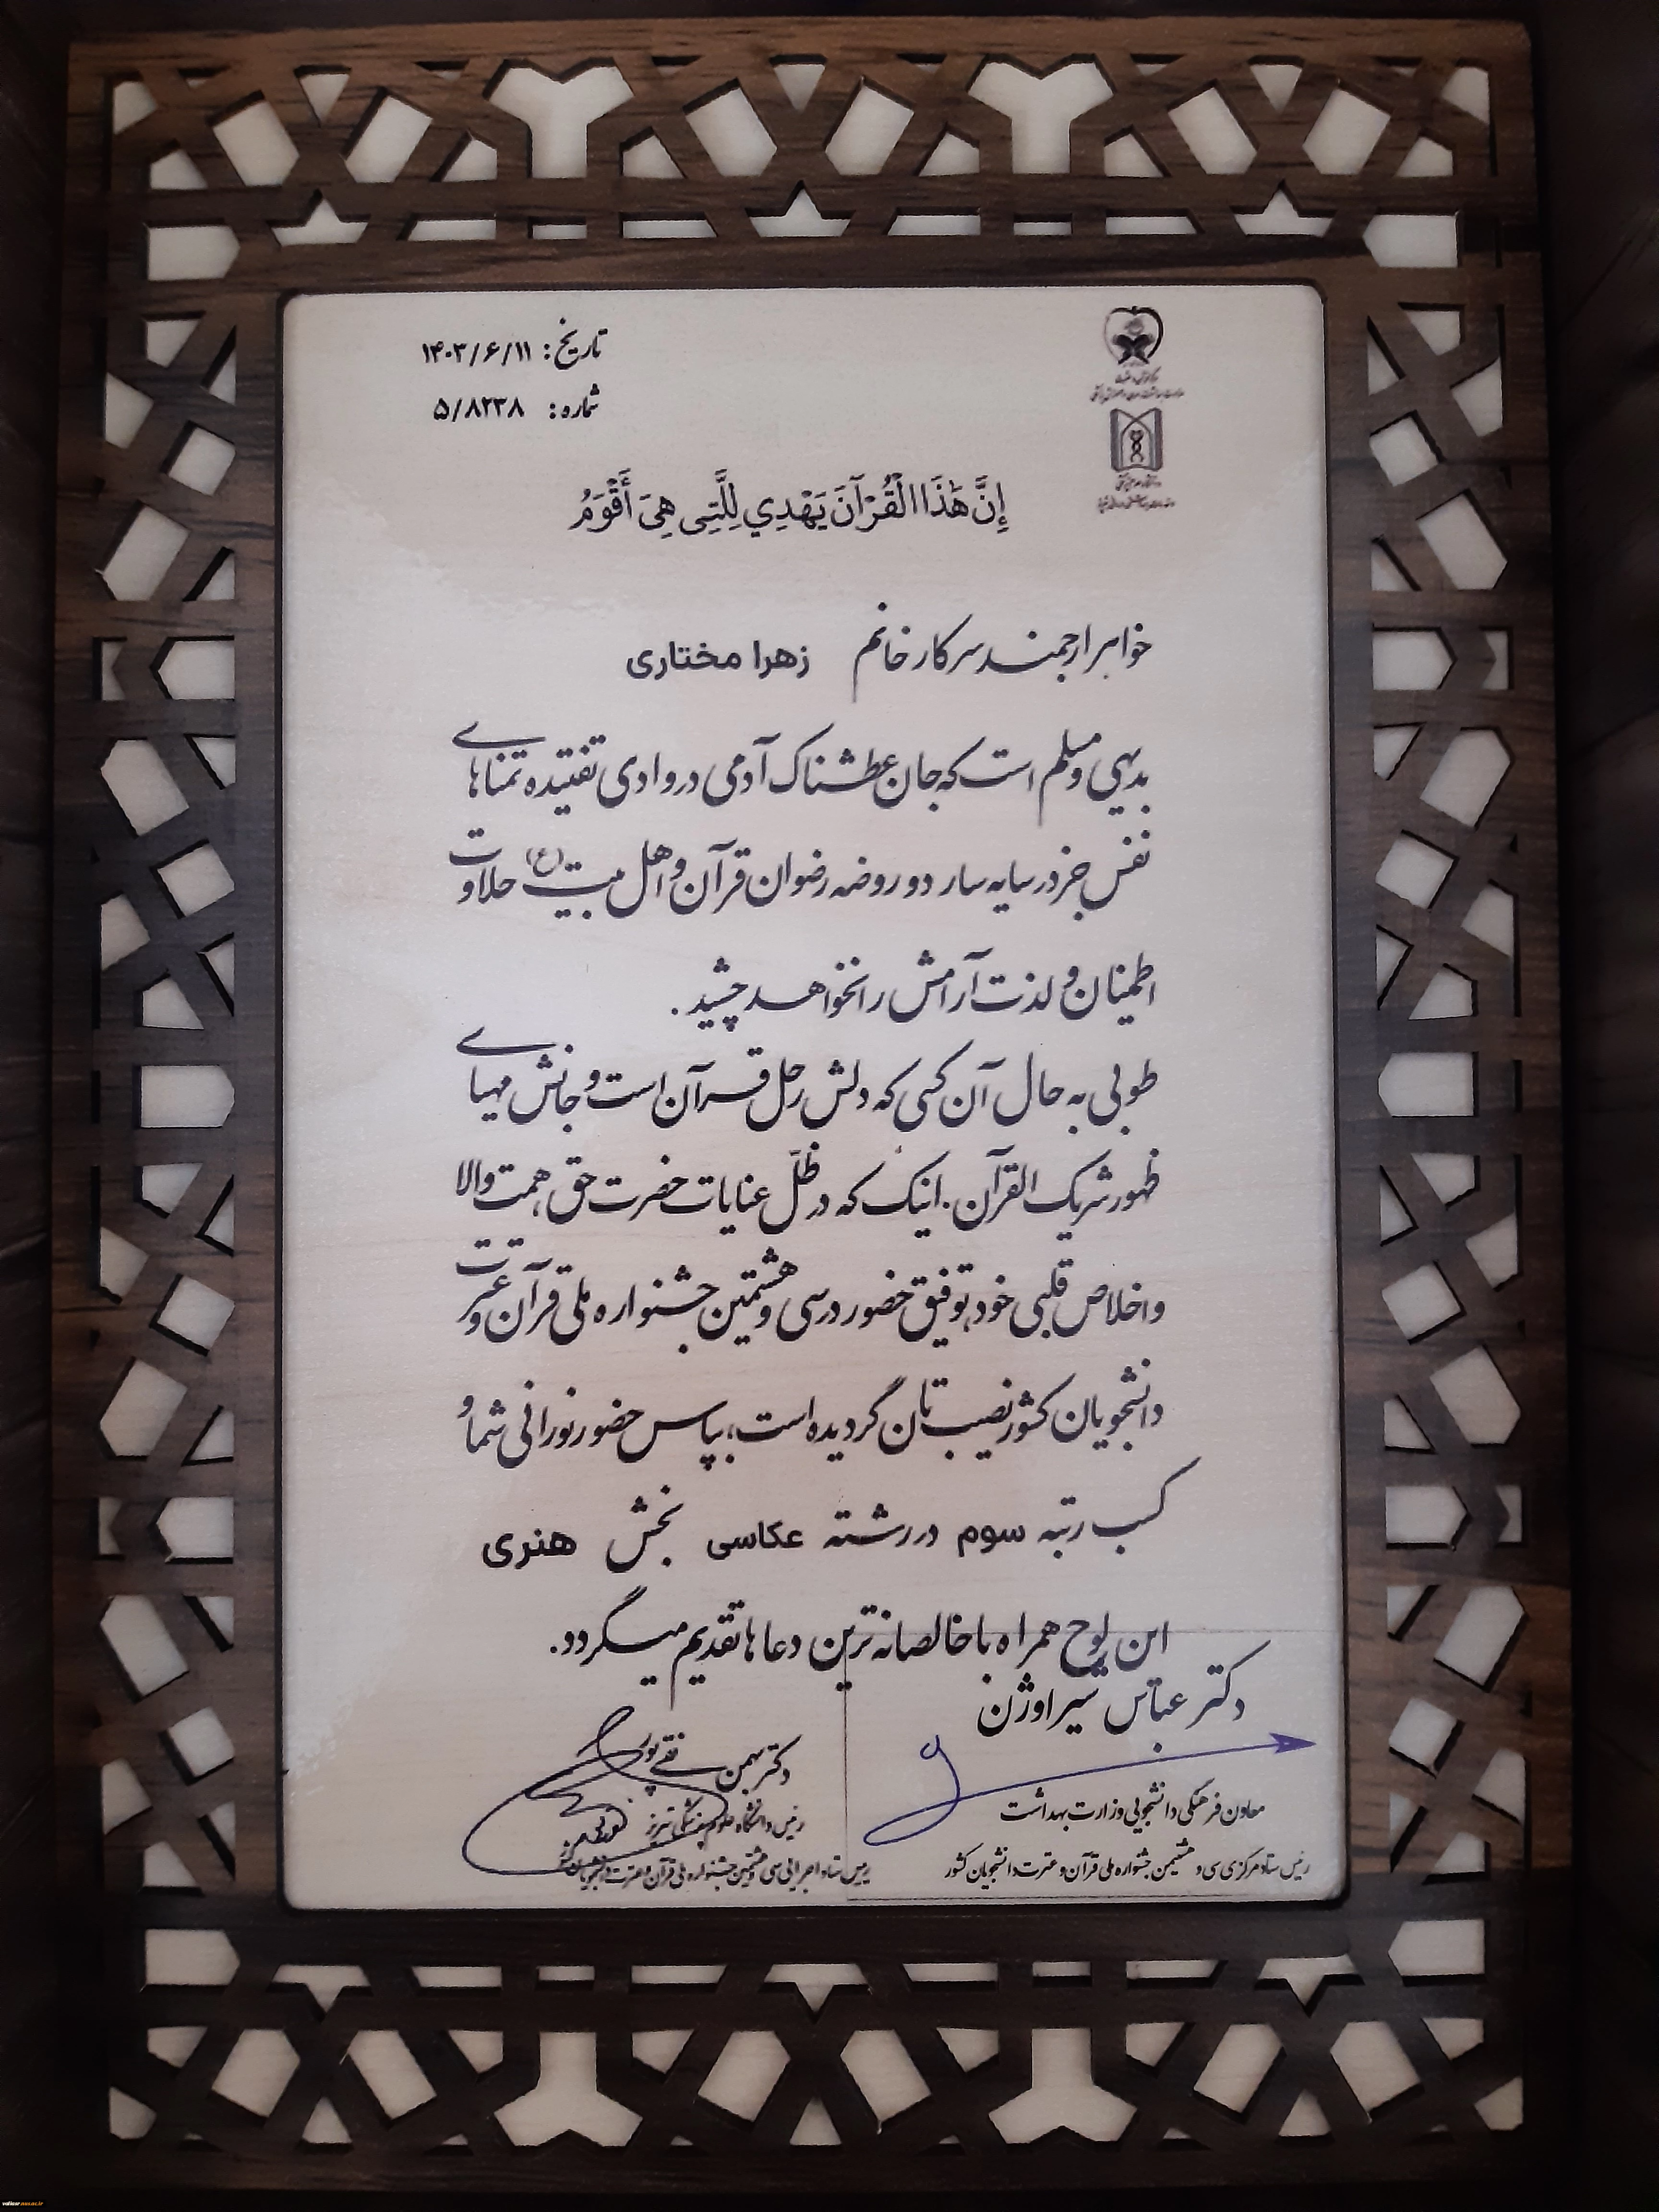 تاریخ: ۱۴۰۳/۶/۱۱
شماره: ۵/۸۲۳۸
إِنَّ هَٰذَا الْقُرْآنَ يَهْدِي لِلَّتِي هِيَ أَقْوَمُ
خواهر ارجمند سرکار خانم زهرا مختاری
بدیهی و مسلم است که جان عطشناک آدمی در وادی تفتیده تمناهای
نفس جز در سایه سار دو روضه رضوان قرآن و اهل بیت (ع) حلاوت
اطمینان و لذت آرامش را نخواهد چشید.
طوبی به حال آن کسی که دلش رحل قرآن است و جانش مهیای
ظهور شریک القرآن. اینک که در ظلّ عنایات حضرت حق، همت والا
و اخلاص قلبی خود، توفیق حضور در سی و هشتمین جشنواره ملی قرآن و عترت
دانشجویان کشور نصیب تان گردیده است، بپاس حضور نورانی شما و
کسب رتبه سوم در رشته عکاسی بخش هنری
این لوح همراه با خالصانه ترین دعاها تقدیم میگردد.
دکتر عباس شیراوژن
معاون فرهنگی دانشجویی وزارت بهداشت
رئیس ستاد مرکزی سی و هشتمین جشنواره ملی قرآن و عترت دانشجویان کشور
دکتر بهمن نقی پور
رئیس دانشگاه علوم پزشکی تبریز
رییس ستاد اجرایی سی و هشتمین جشنواره ملی قرآن و عترت دانشجویان کشور
valiasr.aus.ac.ir